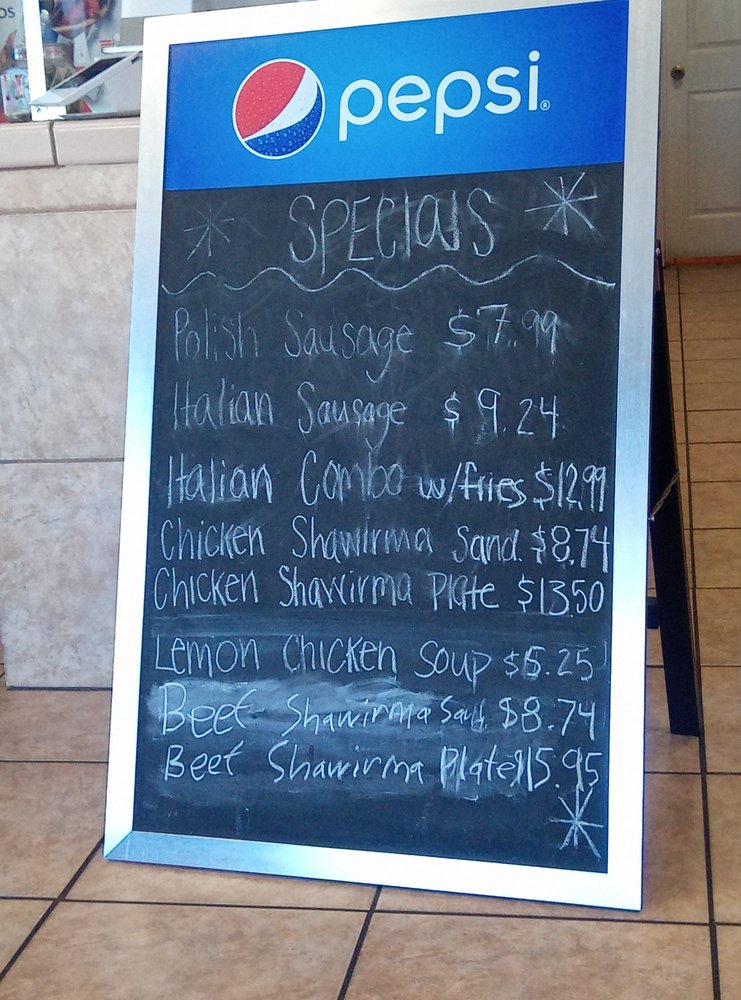 pepsi®
SPECIALS
Polish Sausage $7.99
Italian Sausage $9.24
Italian Combo w/fries $12.99
Chicken Shawirma Sand. $8.74
Chicken Shawirma Plate $13.50
Lemon Chicken Soup $5.25
Beef Shawirma Sand. $8.74
Beef Shawirma Plate $15.95